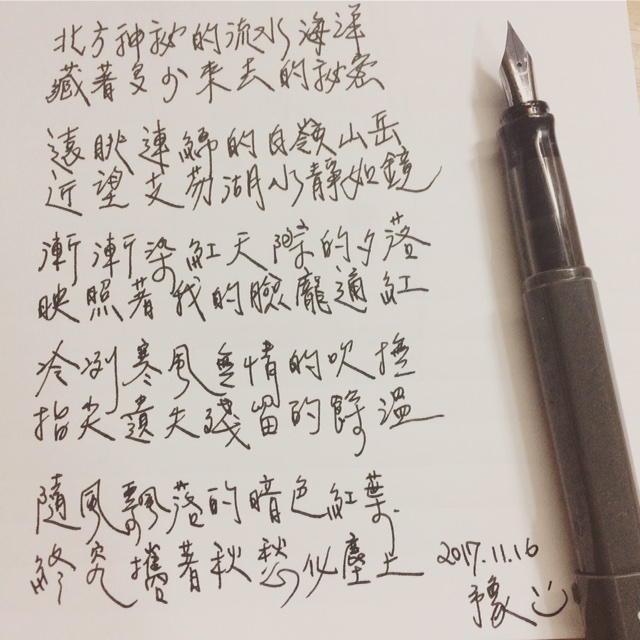 北方神祕的流水海洋
藏著多少來去的祕密
遠眺連綿的白嶺山岳
近望艾芬湖水靜如鏡
漸漸染紅天際的夕落
映照著我的臉龐通紅
冷冽寒風無情的吹撫
指尖遺失殘留的餘溫
隨風飄落的暗色紅葉
終究攜著秋愁似塵土
2017.11.16
豫